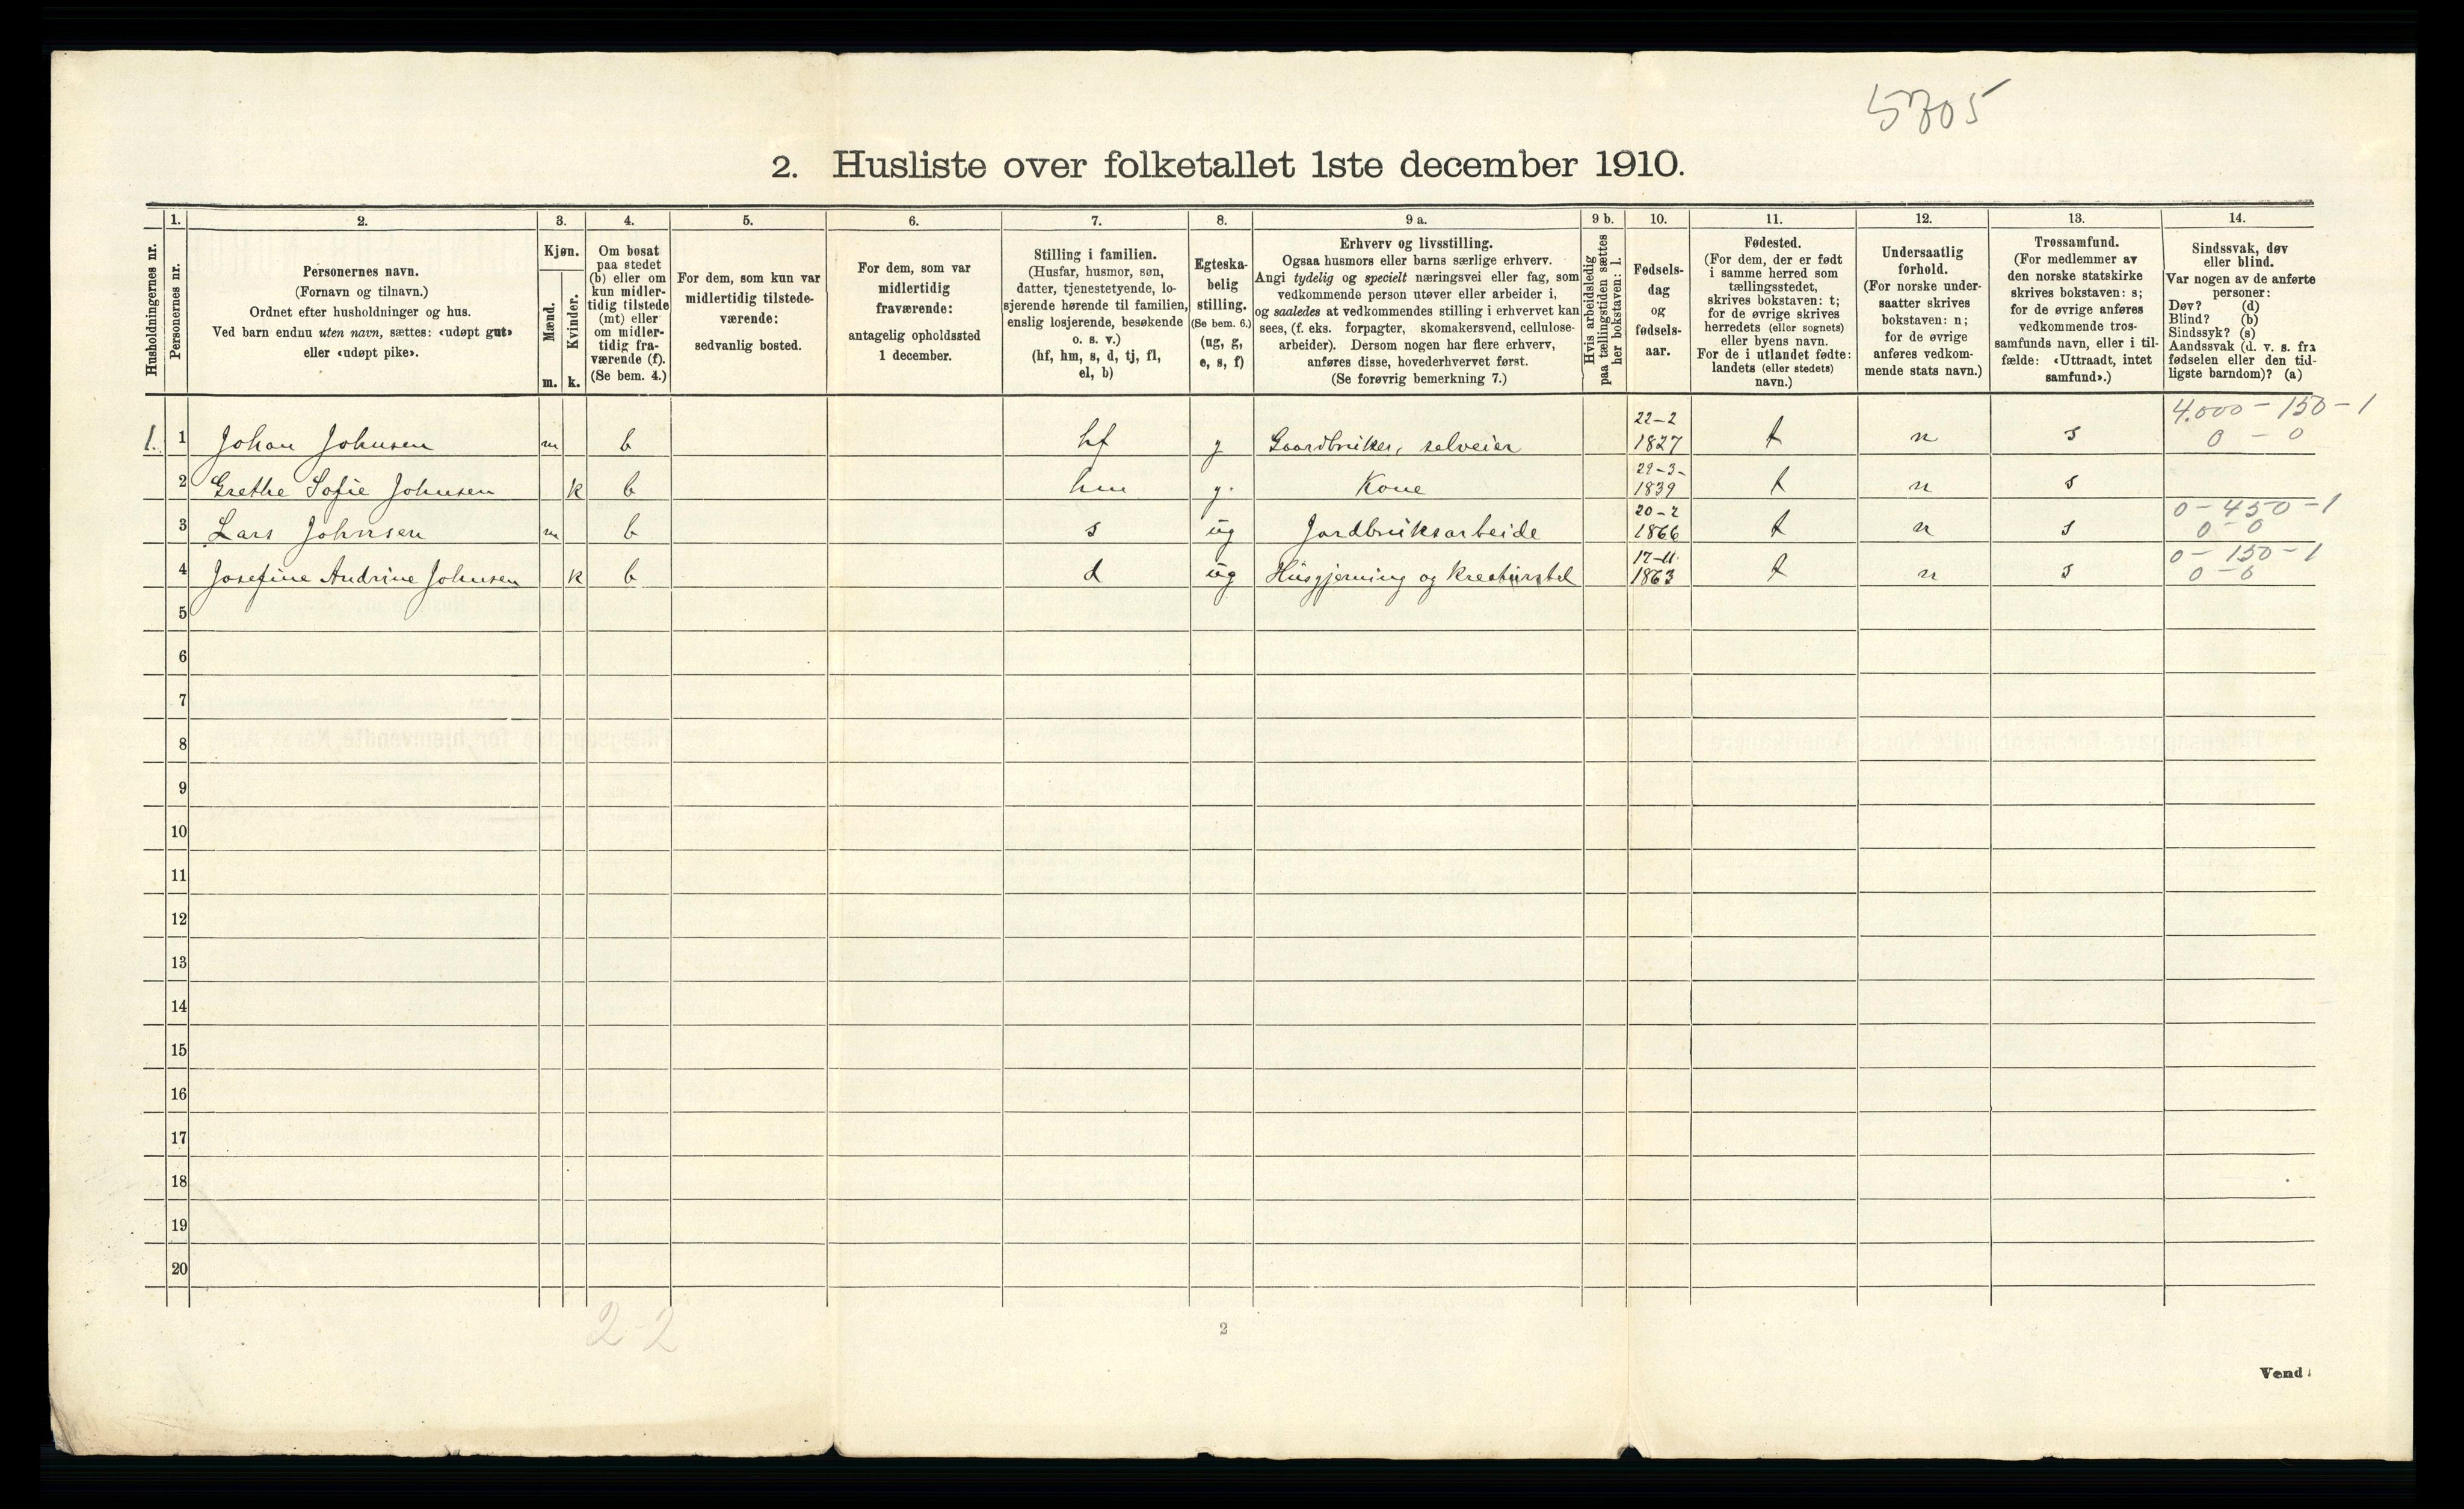 5705
2. Husliste over folketallet 1ste december 1910.
1. 2. 3. 4. 5. 6. 7. 8. 9 a. 9 b. 10. 11. 12. 13. 14.
Husholdningernes nr.
Personernes nr.
Personernes navn.
(Fornavn og tilnavn.)
Ordnet efter husholdninger og hus.
Ved barn endnu uten navn, sættes: «udøpt gut»
eller «udøpt pike».
Kjøn.
Mænd.
Kvinder.
m. k.
Om bosat
paa stedet
(b) eller om
kun midler-
tidig tilstede
(mt) eller
om midler-
tidig fra-
værende (f).
(Se bem. 4.)
For dem, som kun var
midlertidig tilstede-
værende:
sedvanlig bosted.
For dem, som var
midlertidig
fraværende:
antagelig opholdssted
1 december.
Stilling i familien.
(Husfar, husmor, søn,
datter, tjenestetyende, lo-
sjerende hørende til familien,
enslig losjerende, besøkende
o. s. v.)
(hf, hm, s, d, tj, fl,
el, b)
Egteska-
belig
stilling.
(Se bem. 6.)
(ug, g,
e, s, f)
Erhverv og livsstilling.
Ogsaa husmors eller barns særlige erhverv.
Angi tydelig og specielt næringsvei eller fag, som
vedkommende person utøver eller arbeider i,
og saaledes at vedkommendes stilling i erhvervet kan
sees, (f. eks. forpagter, skomakersvend, cellulose-
arbeider). Dersom nogen har flere erhverv,
anføres disse, hovederhvervet først.
(Se forøvrig bemerkning 7.)
Hvis arbeidsledig
paa tællingstiden sættes
her bokstaven: l.
Fødsels-
dag
og
fødsels-
aar.
Fødested.
(For dem, der er født
i samme herred som
tællingsstedet,
skrives bokstaven: t;
for de øvrige skrives
herredets (eller sognets)
eller byens navn.
For de i utlandet fødte:
landets (eller stedets)
navn.)
Undersaatlig
forhold.
(For norske under-
saatter skrives
bokstaven: n;
for de øvrige
anføres vedkom-
mende stats navn.)
Trossamfund.
(For medlemmer av
den norske statskirke
skrives bokstaven: s;
for de øvrige anføres
vedkommende tros-
samfunds navn, eller i til-
fælde: «Uttraadt, intet
samfund».)
Sindssvak, døv
eller blind.
Var nogen av de anførte
personer:
Døv? (d)
Blind? (b)
Sindssyk? (s)
Aandssvak (d. v. s. fra
fødselen eller den tid-
ligste barndom)? (a)
22-2 4.000 - 150 - 1
1. 1 Johan Johnsen m b hf g Gaardbruker, selveier 1827 t n s 0 - 0
29-3-
2 Grethe Sofie Johnsen k b hm g. Kone 1839 t n s
20-2 0 - 450 - 1
3 Lars Johnsen m b s ug Jordbruksarbeide 1866 t n s 0 - 0
17-11. 0 - 150 - 1
4 Josefine Andrine Johnsen k b d ug Husgjerning og kreaturstel 1863 t n s 0 - 0
5
6
7
8
9
10
11
12
13
14
15
16
17
18
19
20
2 2
2
Vend